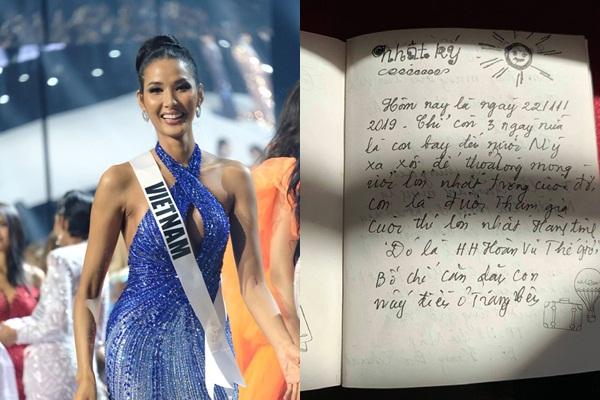 VIETNAM
nhật ký
Hôm nay là ngày 22/11/
2019. Chỉ còn 3 ngày nữa
là con bay đến nước Mỹ
xa xôi để thoả lòng mong
ước lớn nhất trong cuộc đời
con là được tham gia
cuộc thi lớn nhất hành tinh
Đó là HH Hoàn Vũ Thế giới
Bố chỉ căn dặn con
mấy điều ở trang bên